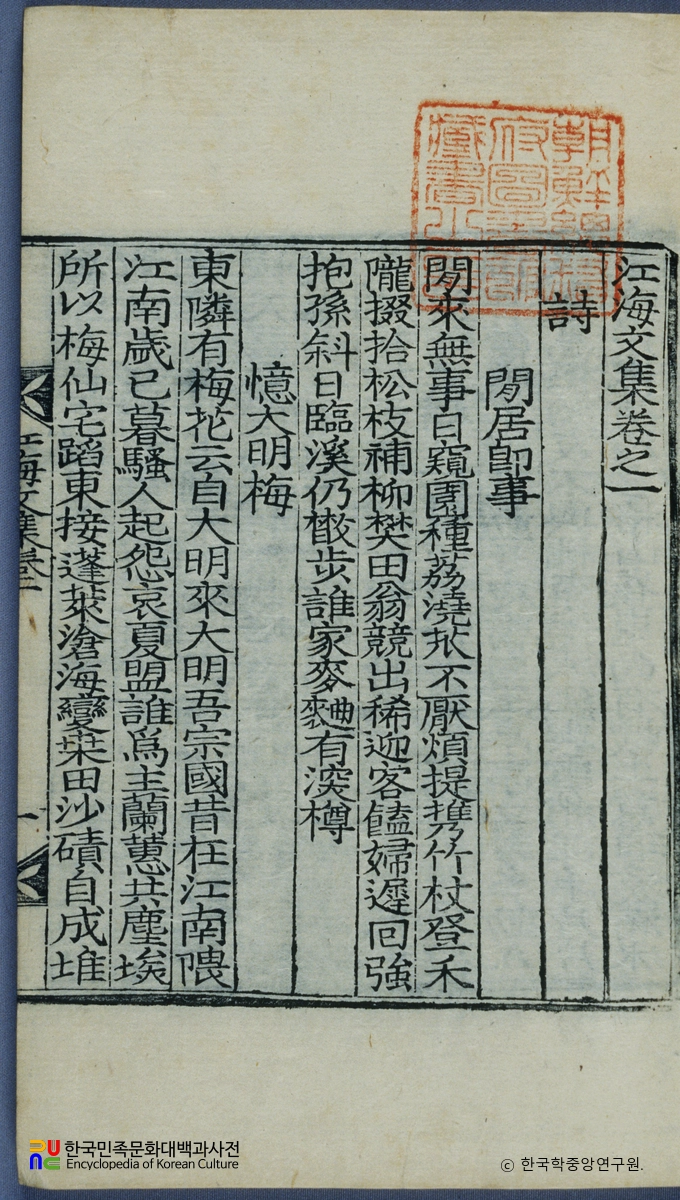 朝鮮總督
府圖書館
藏書之印
江海文集卷之一
詩
閒居卽事
閒來無事日窺園種荔澆不厭煩提携竹杖登禾
隴掇拾松枝補柳樊田翁競出稀迎客饁婦遲回強
抱孫斜日臨溪仍散步誰家麥麯有深樽
憶大明梅
東隣有梅花云自大明來大明吾宗國昔在江南隈
江南歲已暮騷人起怨哀夏盟誰爲主蘭蕙共塵埃
所以梅仙宅蹈東接蓬萊滄海變桒田沙磧自成堆
江海文集卷一
一
한국민족문화대백과사전
Encyclopedia of Korean Culture
© 한국학중앙연구원.